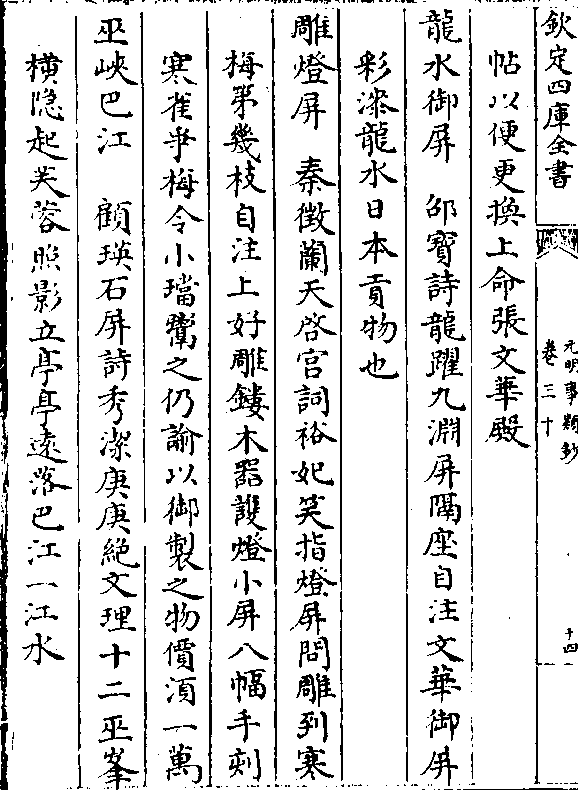 欽定四庫全書
元明事類鈔
卷三十
十四
帖以便更換上命張文華殿
龍水御屏　邵寶詩龍躍九淵屏隔座自注文華御屏
彩漆龍水日本貢物也
雕燈屏　秦徵蘭天啓宮詞裕妃笑指燈屏問雕到寒
梅第幾枝自注上好雕鏤木器護燈小屏八幅手刻
寒雀爭梅令小璫鬻之仍諭以御製之物價須一萬
巫峽巴江　顧瑛石屏詩秀潔庚庚絕文理十二巫峯
横隐起芙蓉照影立亭亭遠落巴江一江水